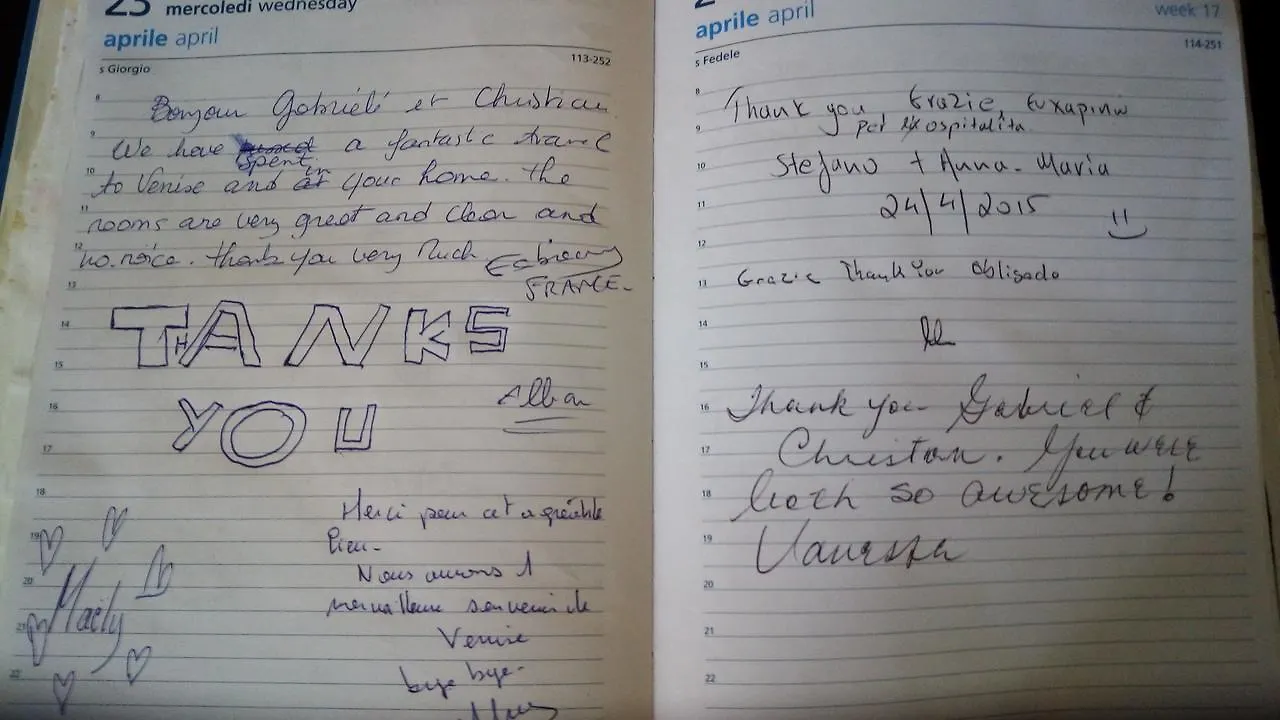 23 mercoledì wednesday
aprile april
s Giorgio 113-252
8
Bonjour Gabriélé et Christian
9
We have spent a fantastic travel
10
to Venise and in your home. the
11
rooms are very great and clean and
12
no noice. thank you very Much
13
FRANCE-
14
THANKS
15
16
YOU Alban
17
18
Merci pour cet agréable
19
lieu-
20
Nous aurons 1
21
merveilleux souvenir de
Venise
22
bye bye-
Maëly
aprile april week 17
s Fedele 114-251
8
Thank you Grazie, Ευχαριστώ
9
per l'ospitalita
10
Stefano + Anna-Maria
11
24/4/2015
12
13
Grazie Thank You Obligado
14
15
16
Thank you Gabriel &
17
Christan. You were
18
both so awesome!
19
Vanessa
20
21
22